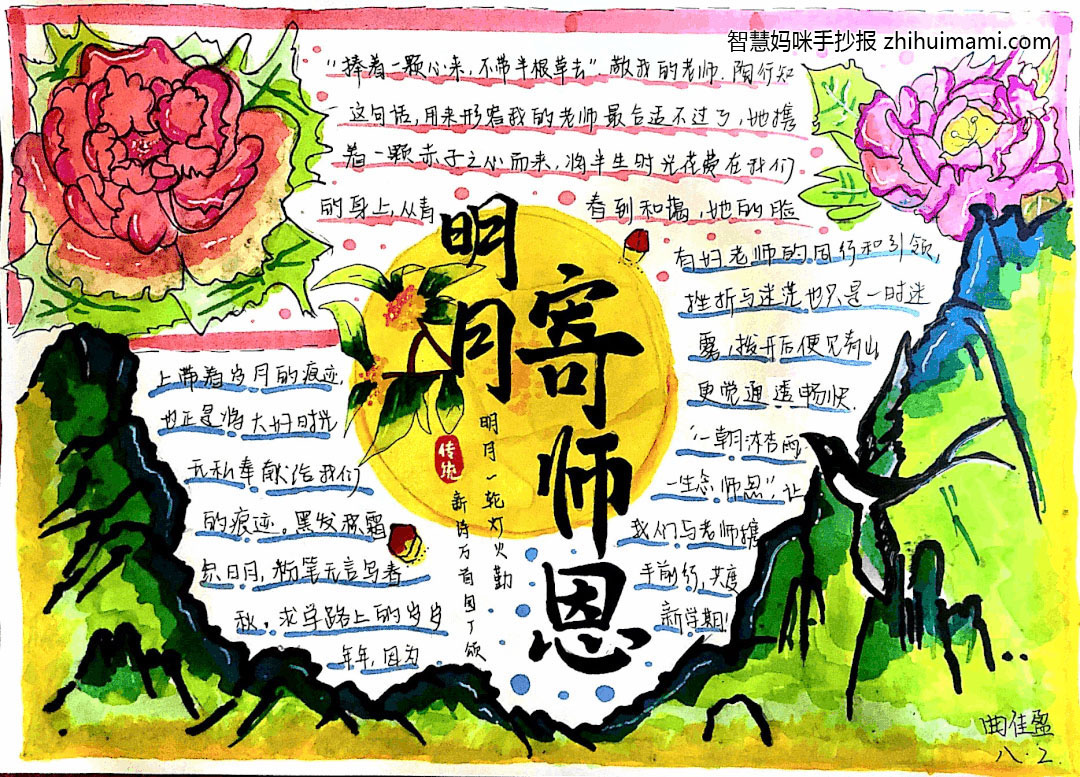 智慧妈咪手抄报 zhihuimami.com
“捧着一颗心来，不带半根草去”敬我的老师．陶行知
这句话，用来形容我的老师最合适不过了，她携
着一颗赤子之心而来，将半生时光花费在我们
的身上，从青
春到和携，她的脸
上带着岁月的痕迹，
也正是将大好时光
无私奉献给我们
的痕迹。黑发积霜
织日月，粉笔无言写春
秋。求学路上的岁岁
年年，因为
有好老师的同行和引领，
挫折与迷茫也只是一时迷
雾，拨开后便见青山
更觉通透畅快．
“一朝沐杏雨
一生念师恩”，让
我们与老师携
手前行，共度
新学期！
明月
寄师恩
传统
明月一轮灯火勤
新诗万首园丁颂
曲佳盈
八·2